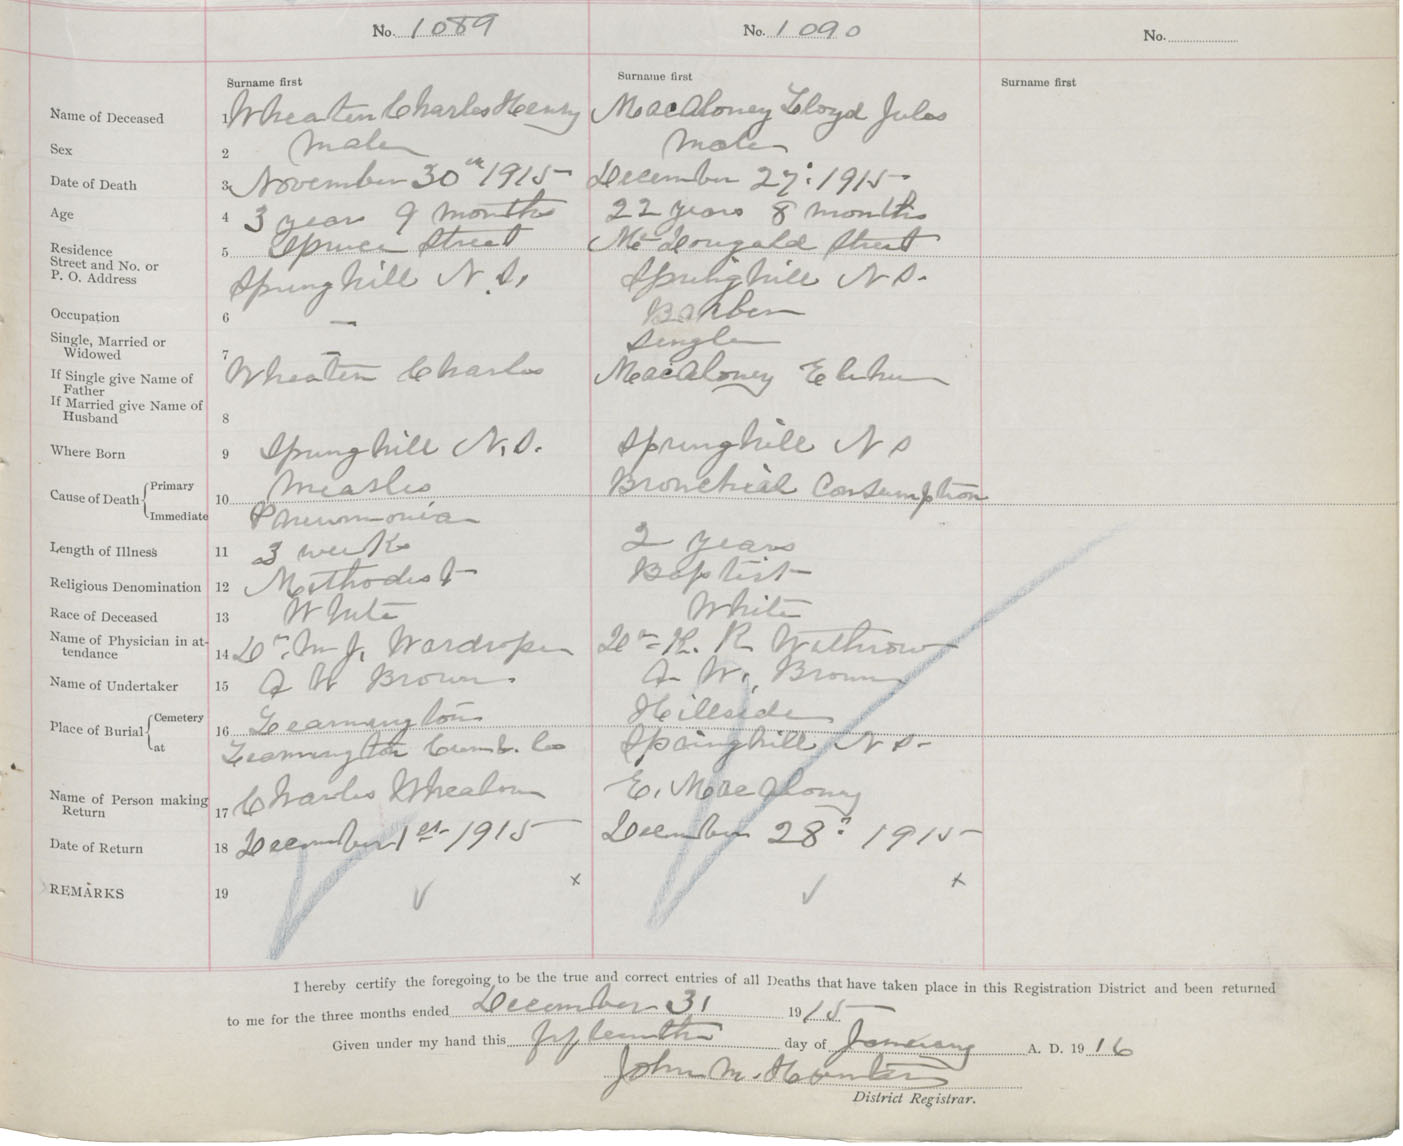 No. 1089 No. 1090 No.
Surname first Surname first Surname first
Name of Deceased 1 Wheaten Charles Henry MacAloney Lloyd Jules
Sex 2 Male Male
Date of Death 3 November 30th 1915 December 27: 1915
Age 4 3 years 9 months 22 years 8 months
Residence
Street and No. or
P. O. Address
5 Spruce Street McDougald Street
Springhill N.S. Springhill N S.
Occupation 6 — Barber
Single, Married or
Widowed
7 — Single
If Single give Name of
Father
Wheaten Charles MacAloney Elihu
If Married give Name of
Husband
8
Where Born 9 Springhill N.S. Springhill N S
Cause of Death Primary 10 Measles Bronchial Consumption
Immediate Pneumonia
Length of Illness 11 3 weeks 2 years
Religious Denomination 12 Methodist Baptist
Race of Deceased 13 White White
Name of Physician in at-
tendance
14 Dr. M J. Wardrope Dr. K. R Withrow
Name of Undertaker 15 A W Brown A. W. Brown
Place of Burial Cemetery 16 Leamington Hillside
at Leamington Cumb. Co Springhill N S.
Name of Person making
Return
17 Charles Wheaton E. MacAloney
Date of Return 18 December 1st 1915 December 28: 1915
REMARKS 19 ✓ x ✓ x
I hereby certify the foregoing to be the true and correct entries of all Deaths that have taken place in this Registration District and been returned
to me for the three months ended December 31 1915
Given under my hand this fifteenth day of January A. D. 1916
John M. Hunter
District Registrar.